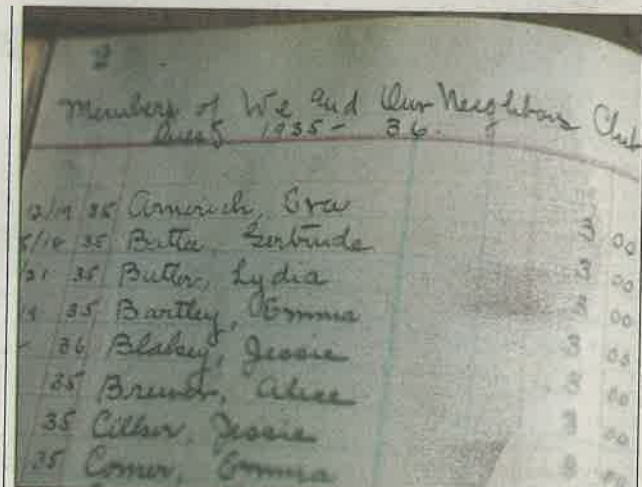 2
Members of We and Our Neighbors Club
Dues 1935 - 36.
12/19 35 Americh, Eva 3
5/18 35 Gertrude 3 00
/21 35 Butler, Lydia 3 00
35 Bartley, Emma 3 00
36 Blakey, Jessie 3 00
35 Brewer, Alice 3 00
35 Jessie 3 00
35 Comer, Emma 3 00